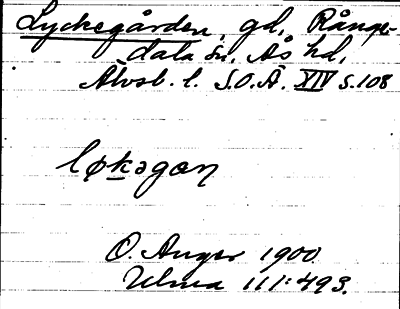 Lyckegården, gd, Rånge-
dala sn, Ås hd,
Älvsb. l. S.O.Ä. XIV s.108
løkəgan
O. Anger 1900
Ulma 111:493.